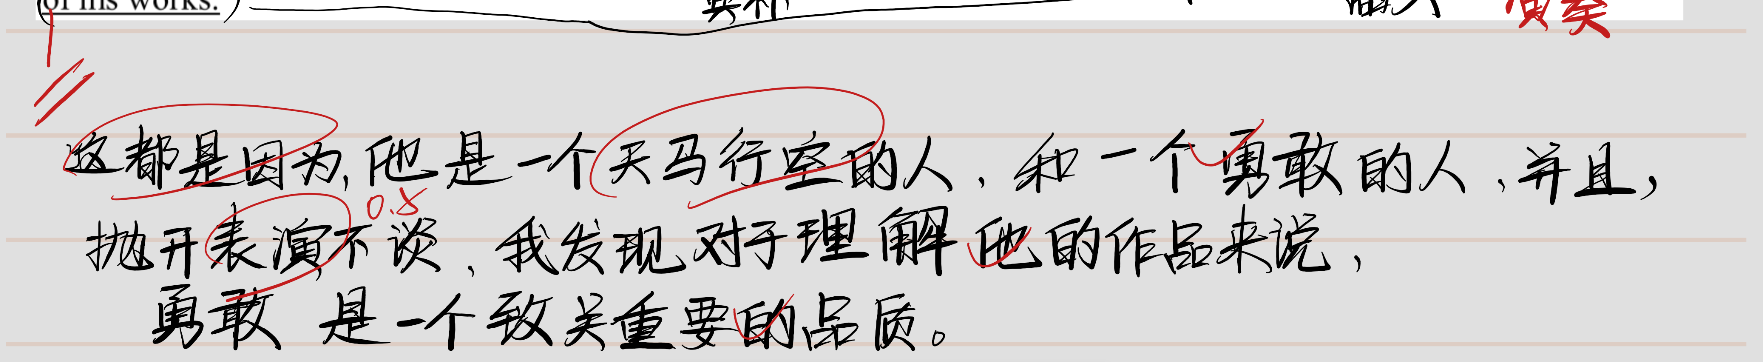 of his works.
这都是因为,他是一个天马行空的人、和一个勇敢的人、并且,
0.5
抛开表演不谈、我发现对于理解他的作品来说,
勇敢是一个致关重要的品质。